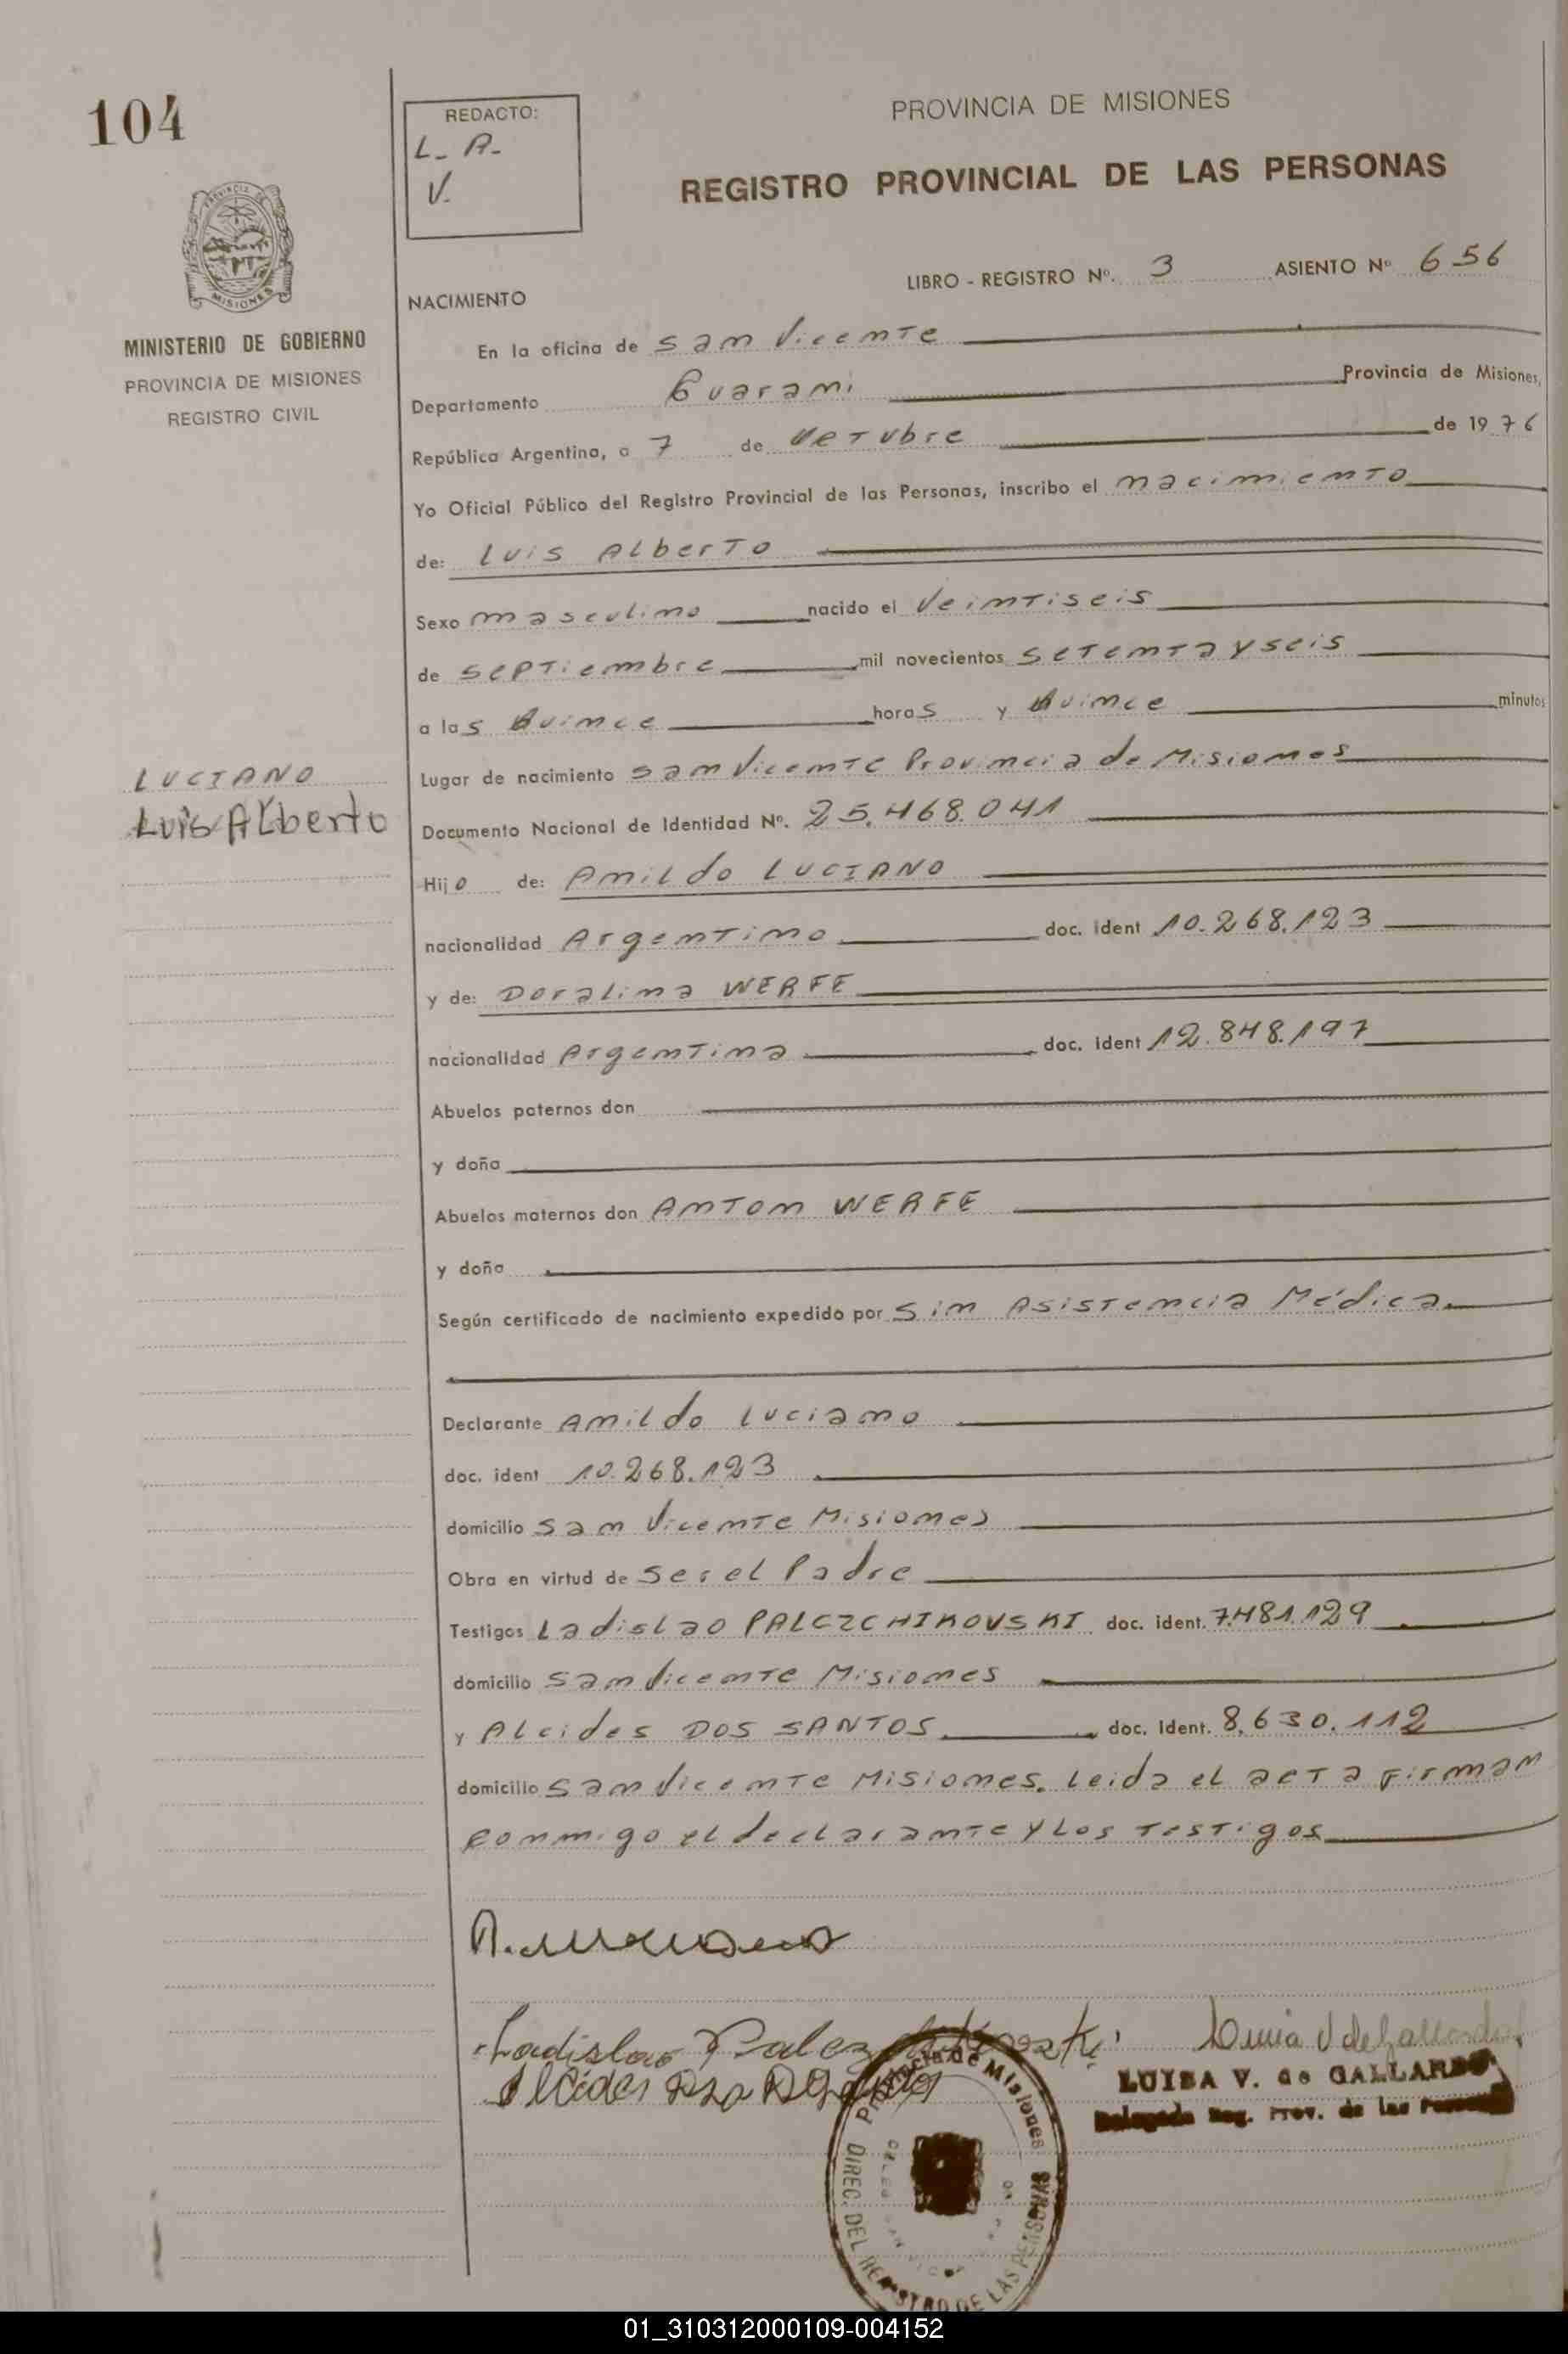 104
REDACTO:
L. A.
V.
PROVINCIA DE MISIONES
REGISTRO PROVINCIAL DE LAS PERSONAS
LIBRO - REGISTRO Nº. 3 ASIENTO Nº 656
MINISTERIO DE GOBIERNO
PROVINCIA DE MISIONES
REGISTRO CIVIL
NACIMIENTO
En la oficina de San Vicente
Departamento Guarani Provincia de Misiones,
República Argentina, a 7 de Octubre de 1976
Yo Oficial Público del Registro Provincial de las Personas, inscribo el nacimiento
de: Luis Alberto
Sexo masculino nacido el Veintiseis
de septiembre mil novecientos setenta y seis
a las Quince horas y Quince minutos
LUCIANO
Luis Alberto
Lugar de nacimiento San Vicente Provincia de Misiones
Documento Nacional de Identidad Nº. 25.468.041
Hijo de: Anildo LUCIANO
nacionalidad Argentino doc. ident 10.268.123
y de: Doralina WERFE
nacionalidad Argentina doc. ident 12.848.197
Abuelos paternos don
y doña
Abuelos maternos don ANTON WERFE
y doña
Según certificado de nacimiento expedido por Sin Asistencia Médica
Declarante Anildo Luciano
doc. ident 10.268.123
domicilio San Vicente Misiones
Obra en virtud de ser el Padre
Testigos Ladislao PALCZCHIKOVSKI doc. ident. 7.481.129
domicilio San Vicente Misiones
y Alcides DOS SANTOS doc. Ident. 8.630.112
domicilio San Vicente Misiones. Leida el acta firman
conmigo el declarante y los testigos
Ladislao
Alcides
LUISA V. de GALLARDO
Delegada Reg. Prov. de las Personas
Provincia de Misiones
DIREC. DEL REGISTRO DE LAS PERSONAS
01_310312000109-004152